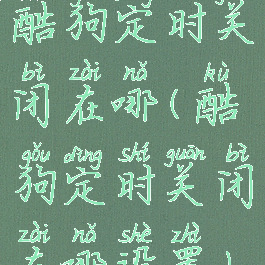 酷狗定时关
bì zài nǎ kù
闭在哪(酷
gǒu dìng shí guān bì
狗定时关闭
zài nǎ shè zhì
在哪设置)